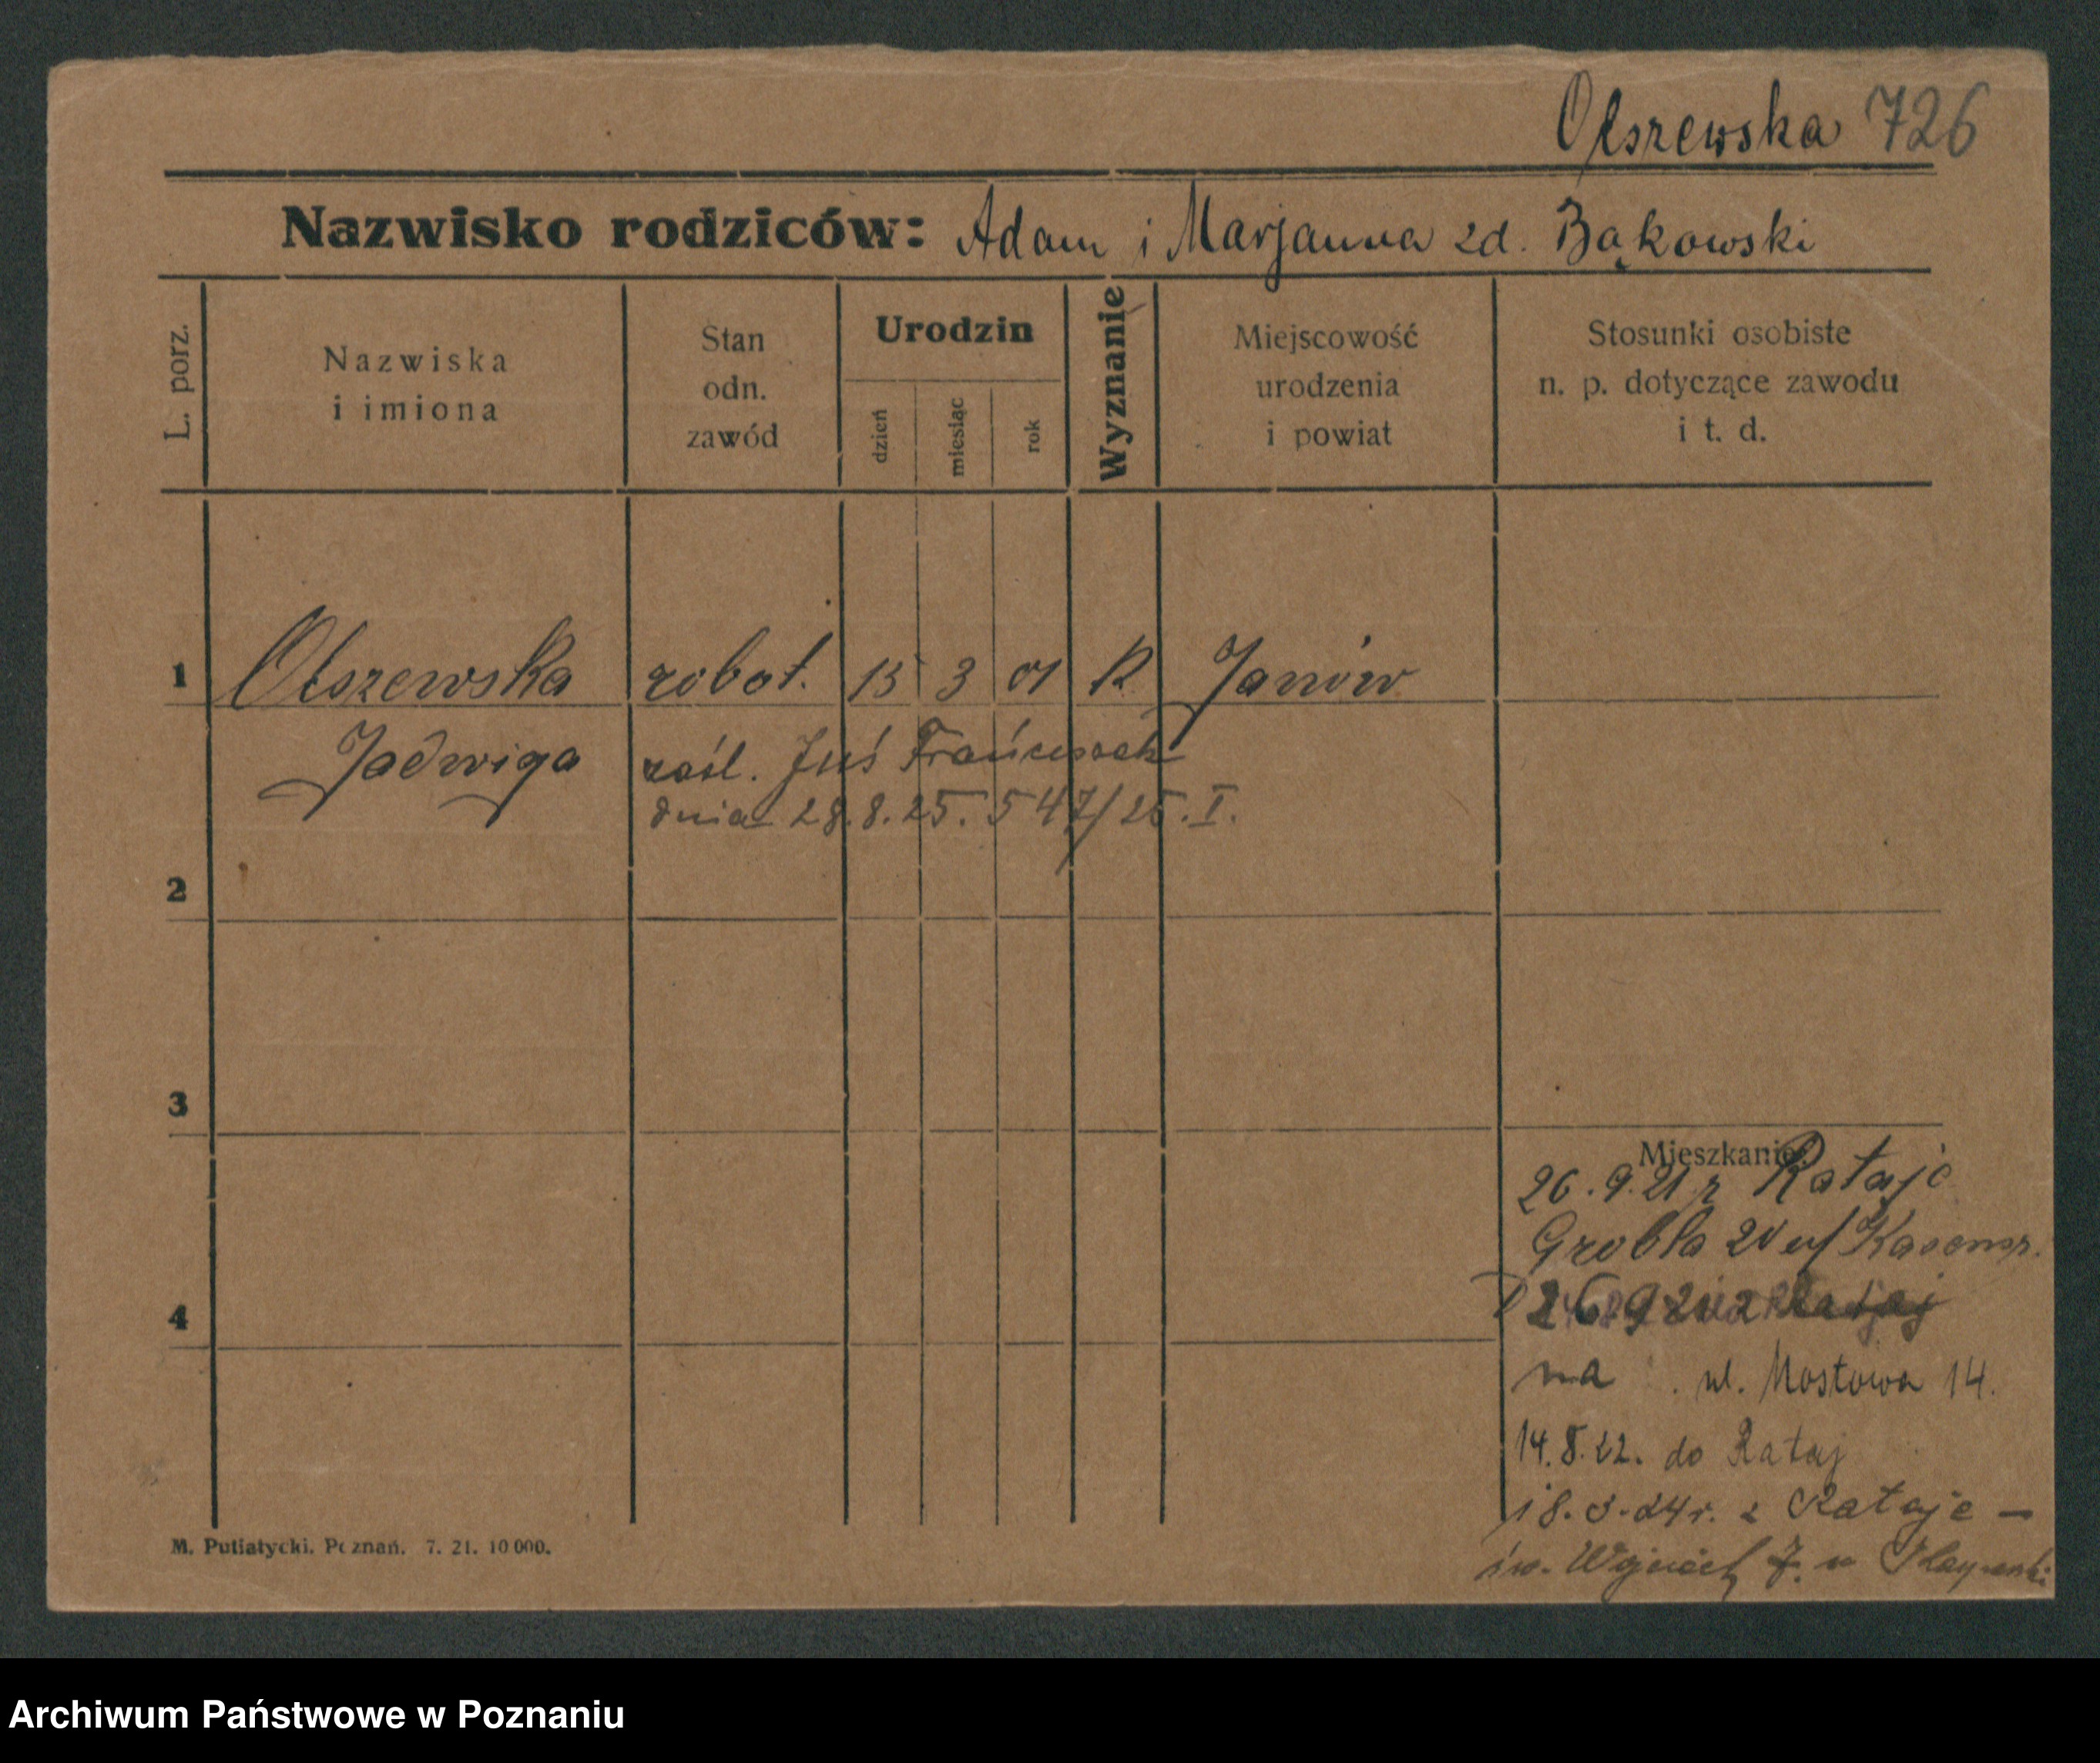 Olszewska 726
Nazwisko rodziców: Adam i Marjanna zd. Bąkowski
L. porz.
Nazwiska
i imiona
Stan
odn.
zawód
Urodzin
dzień
miesiąc
rok
Wyznanie
Miejscowość
urodzenia
i powiat
Stosunki osobiste
n. p. dotyczące zawodu
i t. d.
1 Olszewska robot. 15 3 01 R Janów
Jadwiga zaśl. Juś Frańciszek
dnia 28.8.25. 547/25. I.
2
3
Mieszkanie:
26.9.21 z Rataje
Grobla 2
4
na ul. Mostowa 14.
14.8.22. do Rataj
18.3.24r. z Rataje —
św. Wojciech 7. u
M. Putiatycki. Poznań. 7. 21. 10 000.
Archiwum Państwowe w Poznaniu